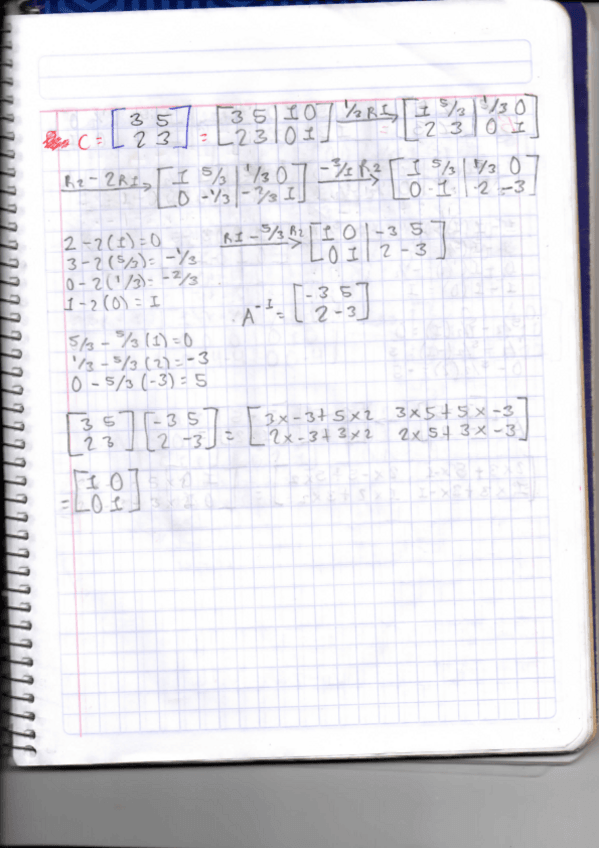 C = [3 5 2 3] = [3 5 | 1 0 2 3 | 0 1] 1/3 R1 → [1 5/3 | 1/3 0 2 3 | 0 1]
R2 - 2R1 → [1 5/3 | 1/3 0 0 -1/3 | -2/3 1] -3/1 R2 → [1 5/3 | 1/3 0 0 1 | 2 -3]
2 - 2(1) = 0
3 - 2(5/3) = -1/3
0 - 2(1/3) = -2/3
1 - 2(0) = 1
R1 - 5/3 R2 → [1 0 | -3 5 0 1 | 2 -3]
A^-1 = [-3 5 2 -3]
5/3 - 5/3 (1) = 0
1/3 - 5/3 (2) = -3
0 - 5/3 (-3) = 5
[3 5 2 3] [-3 5 2 -3] = [3x-3+5x2 3x5+5x-3 2x-3+3x2 2x5+3x-3]
= [1 0 0 1]